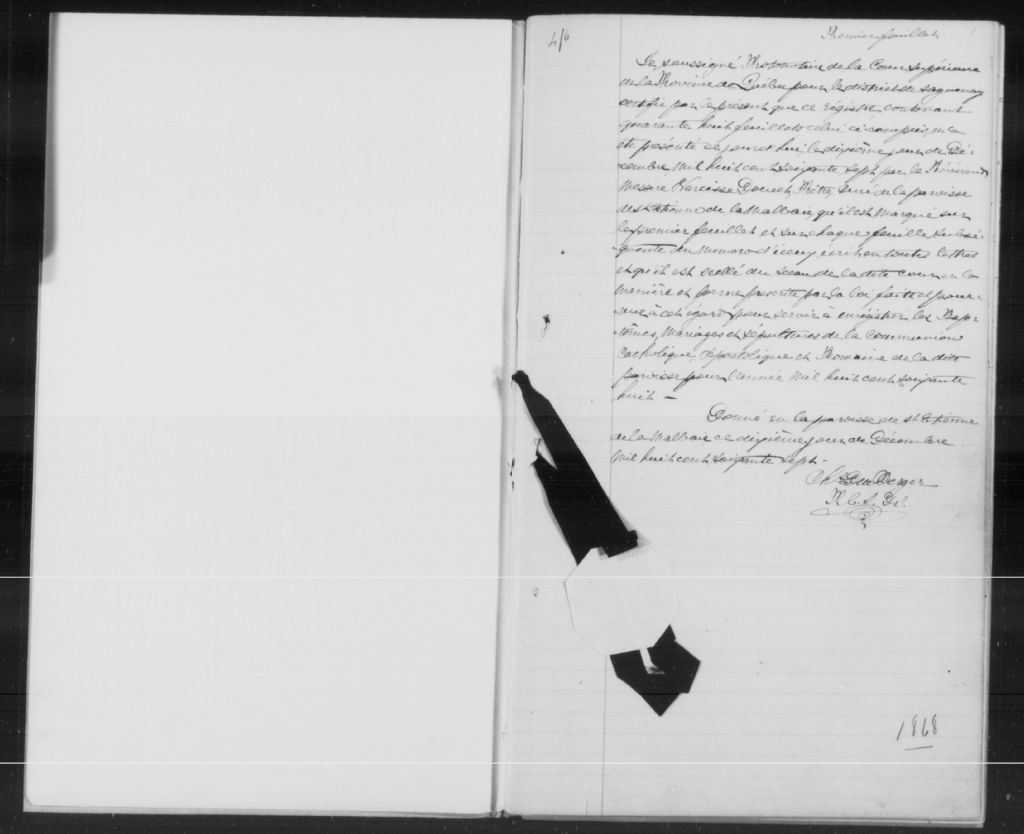 Premier feuillet
Je, soussigné, Protonotaire de la Cour Supérieure
de la Province de Québec pour le district de Saguenay
certifie par le présent que ce régistre contenant
quarante huit feuillets celui ci compris m'a
été présenté ce jourd'hui le dixième jour de Dé-
cembre Mil huit cent soixante sept par le Révérend
Messire Narcisse Doucet, Prêtre, Curé de la paroisse
de St Etienne de la Malbaie, qu'il est marqué sur
le premier feuillet et sur chaque feuillet subsé-
quent du numero d'iceux écrit en toutes lettres
et qu'il est scellé du sceau de la dite cour en la
manière et forme prescrite par la loi faite et pour-
vue à cet égard pour servir à enrégistrer les Bap-
têmes, Mariages et sépultures de la Communion
Catholique, Apostolique et Romaine de la dite
paroisse pour l'année Mil huit cent soixante
huit –
Donné en la paroisse de St Etienne
de la Malbaie ce dixième jour de Décembre
Mil huit cent soixante sept.
Chs DuBerger
P. C. S. Ds.
1868